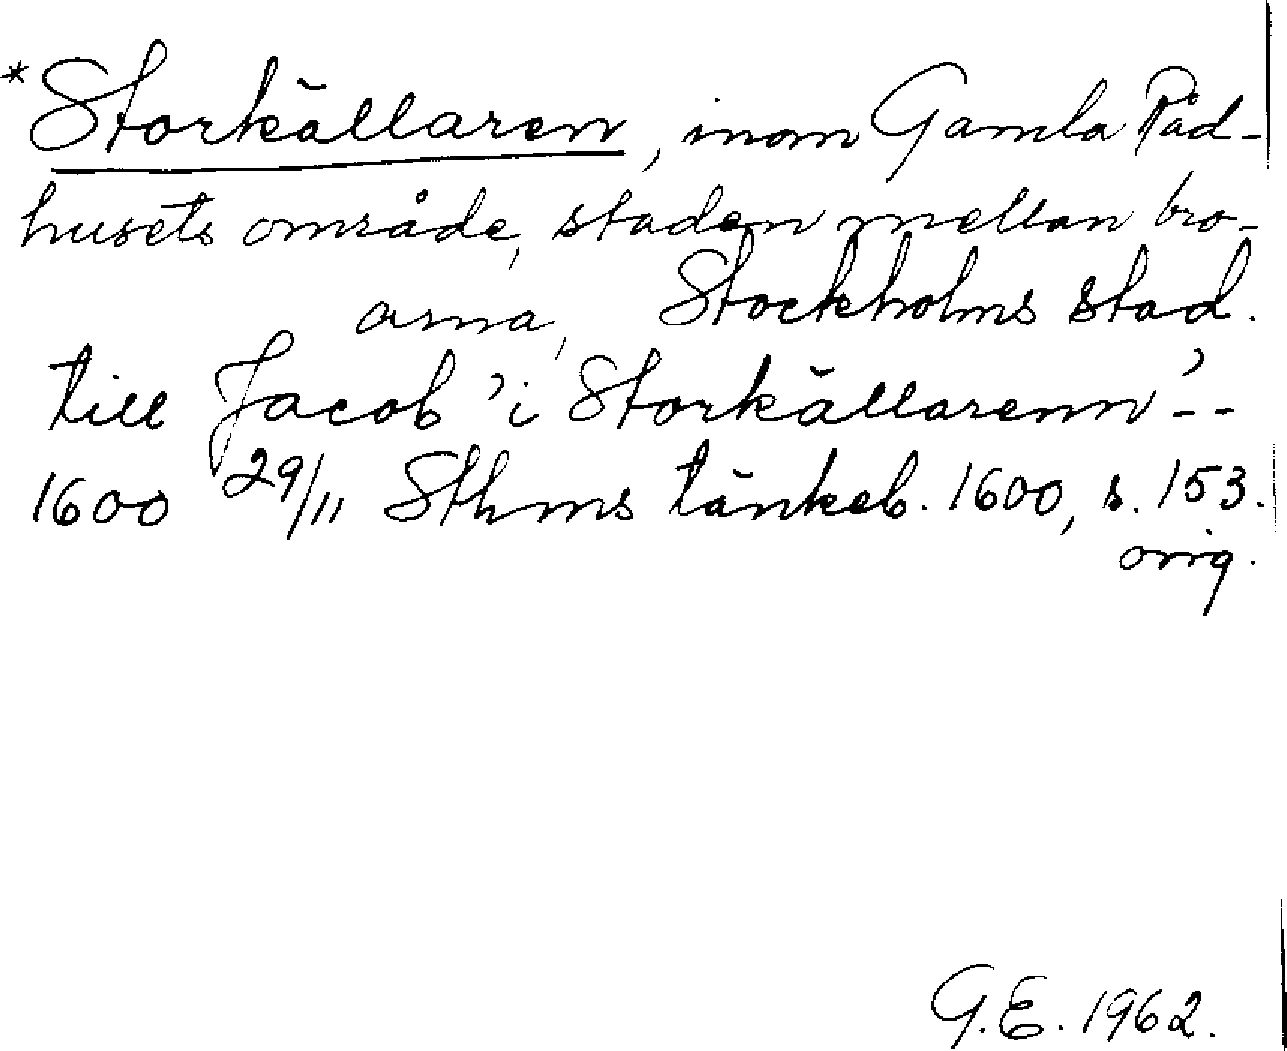 *Storkällaren, inom Gamla Råd-
husets område, staden mellan bro-
arna, Stockholms stad.
till Jacob 'i Storkällarenn' - -
1600 29/11 Sthms tänkeb. 1600, s. 153.
orig.
G.E. 1962.